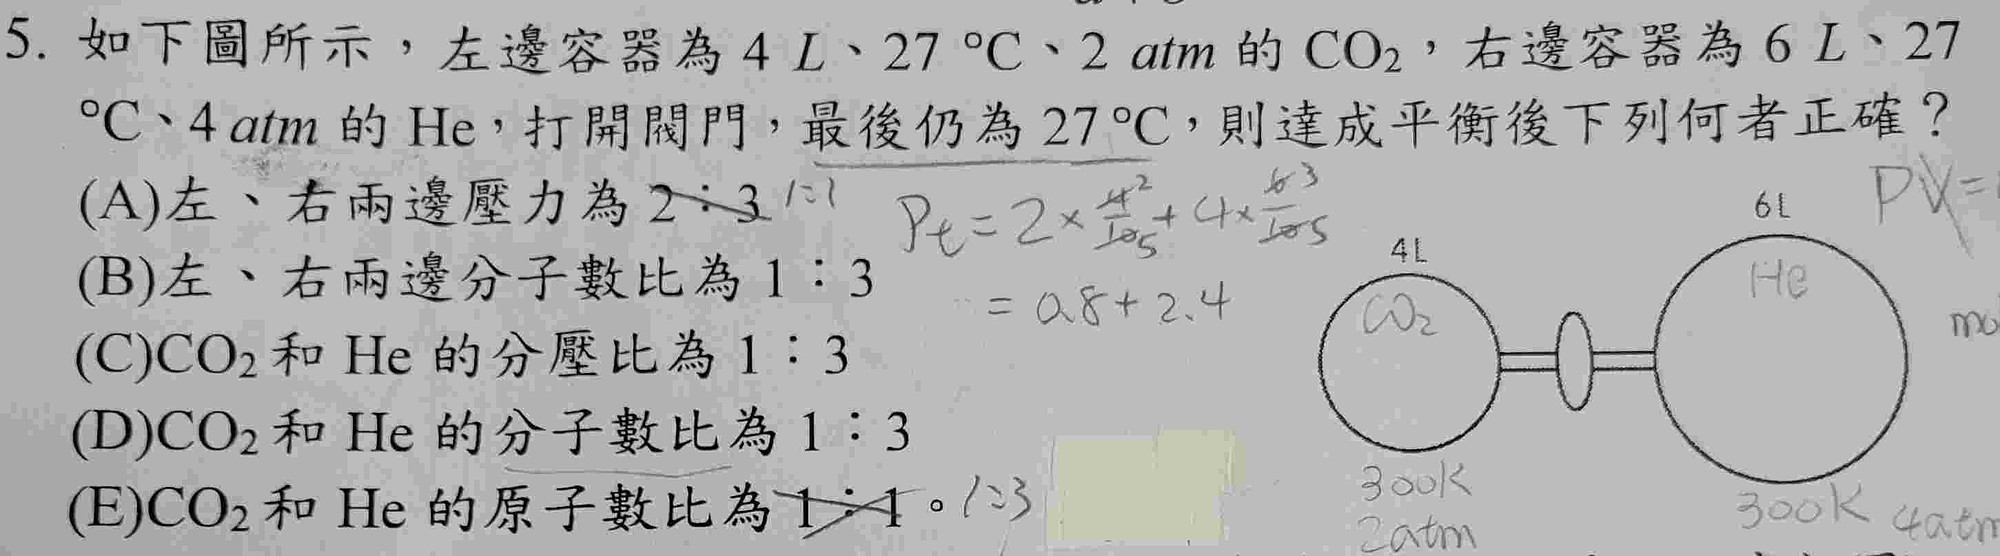 5. 如下圖所示，左邊容器為 4 L、27 °C、2 atm 的 CO₂，右邊容器為 6 L、27
°C、4 atm 的 He，打開閥門，最後仍為 27 °C，則達成平衡後下列何者正確？
(A)左、右兩邊壓力為 2：3 1:1
(B)左、右兩邊分子數比為 1：3
(C)CO₂ 和 He 的分壓比為 1：3
(D)CO₂ 和 He 的分子數比為 1：3
(E)CO₂ 和 He 的原子數比為 1：1。1:3
Pt = 2 × 4/10 + 4 × 6/10
2 5 3 5
= 0.8 + 2.4
PV=
4L
6L
CO₂
He
300K
2atm
300K 4atm